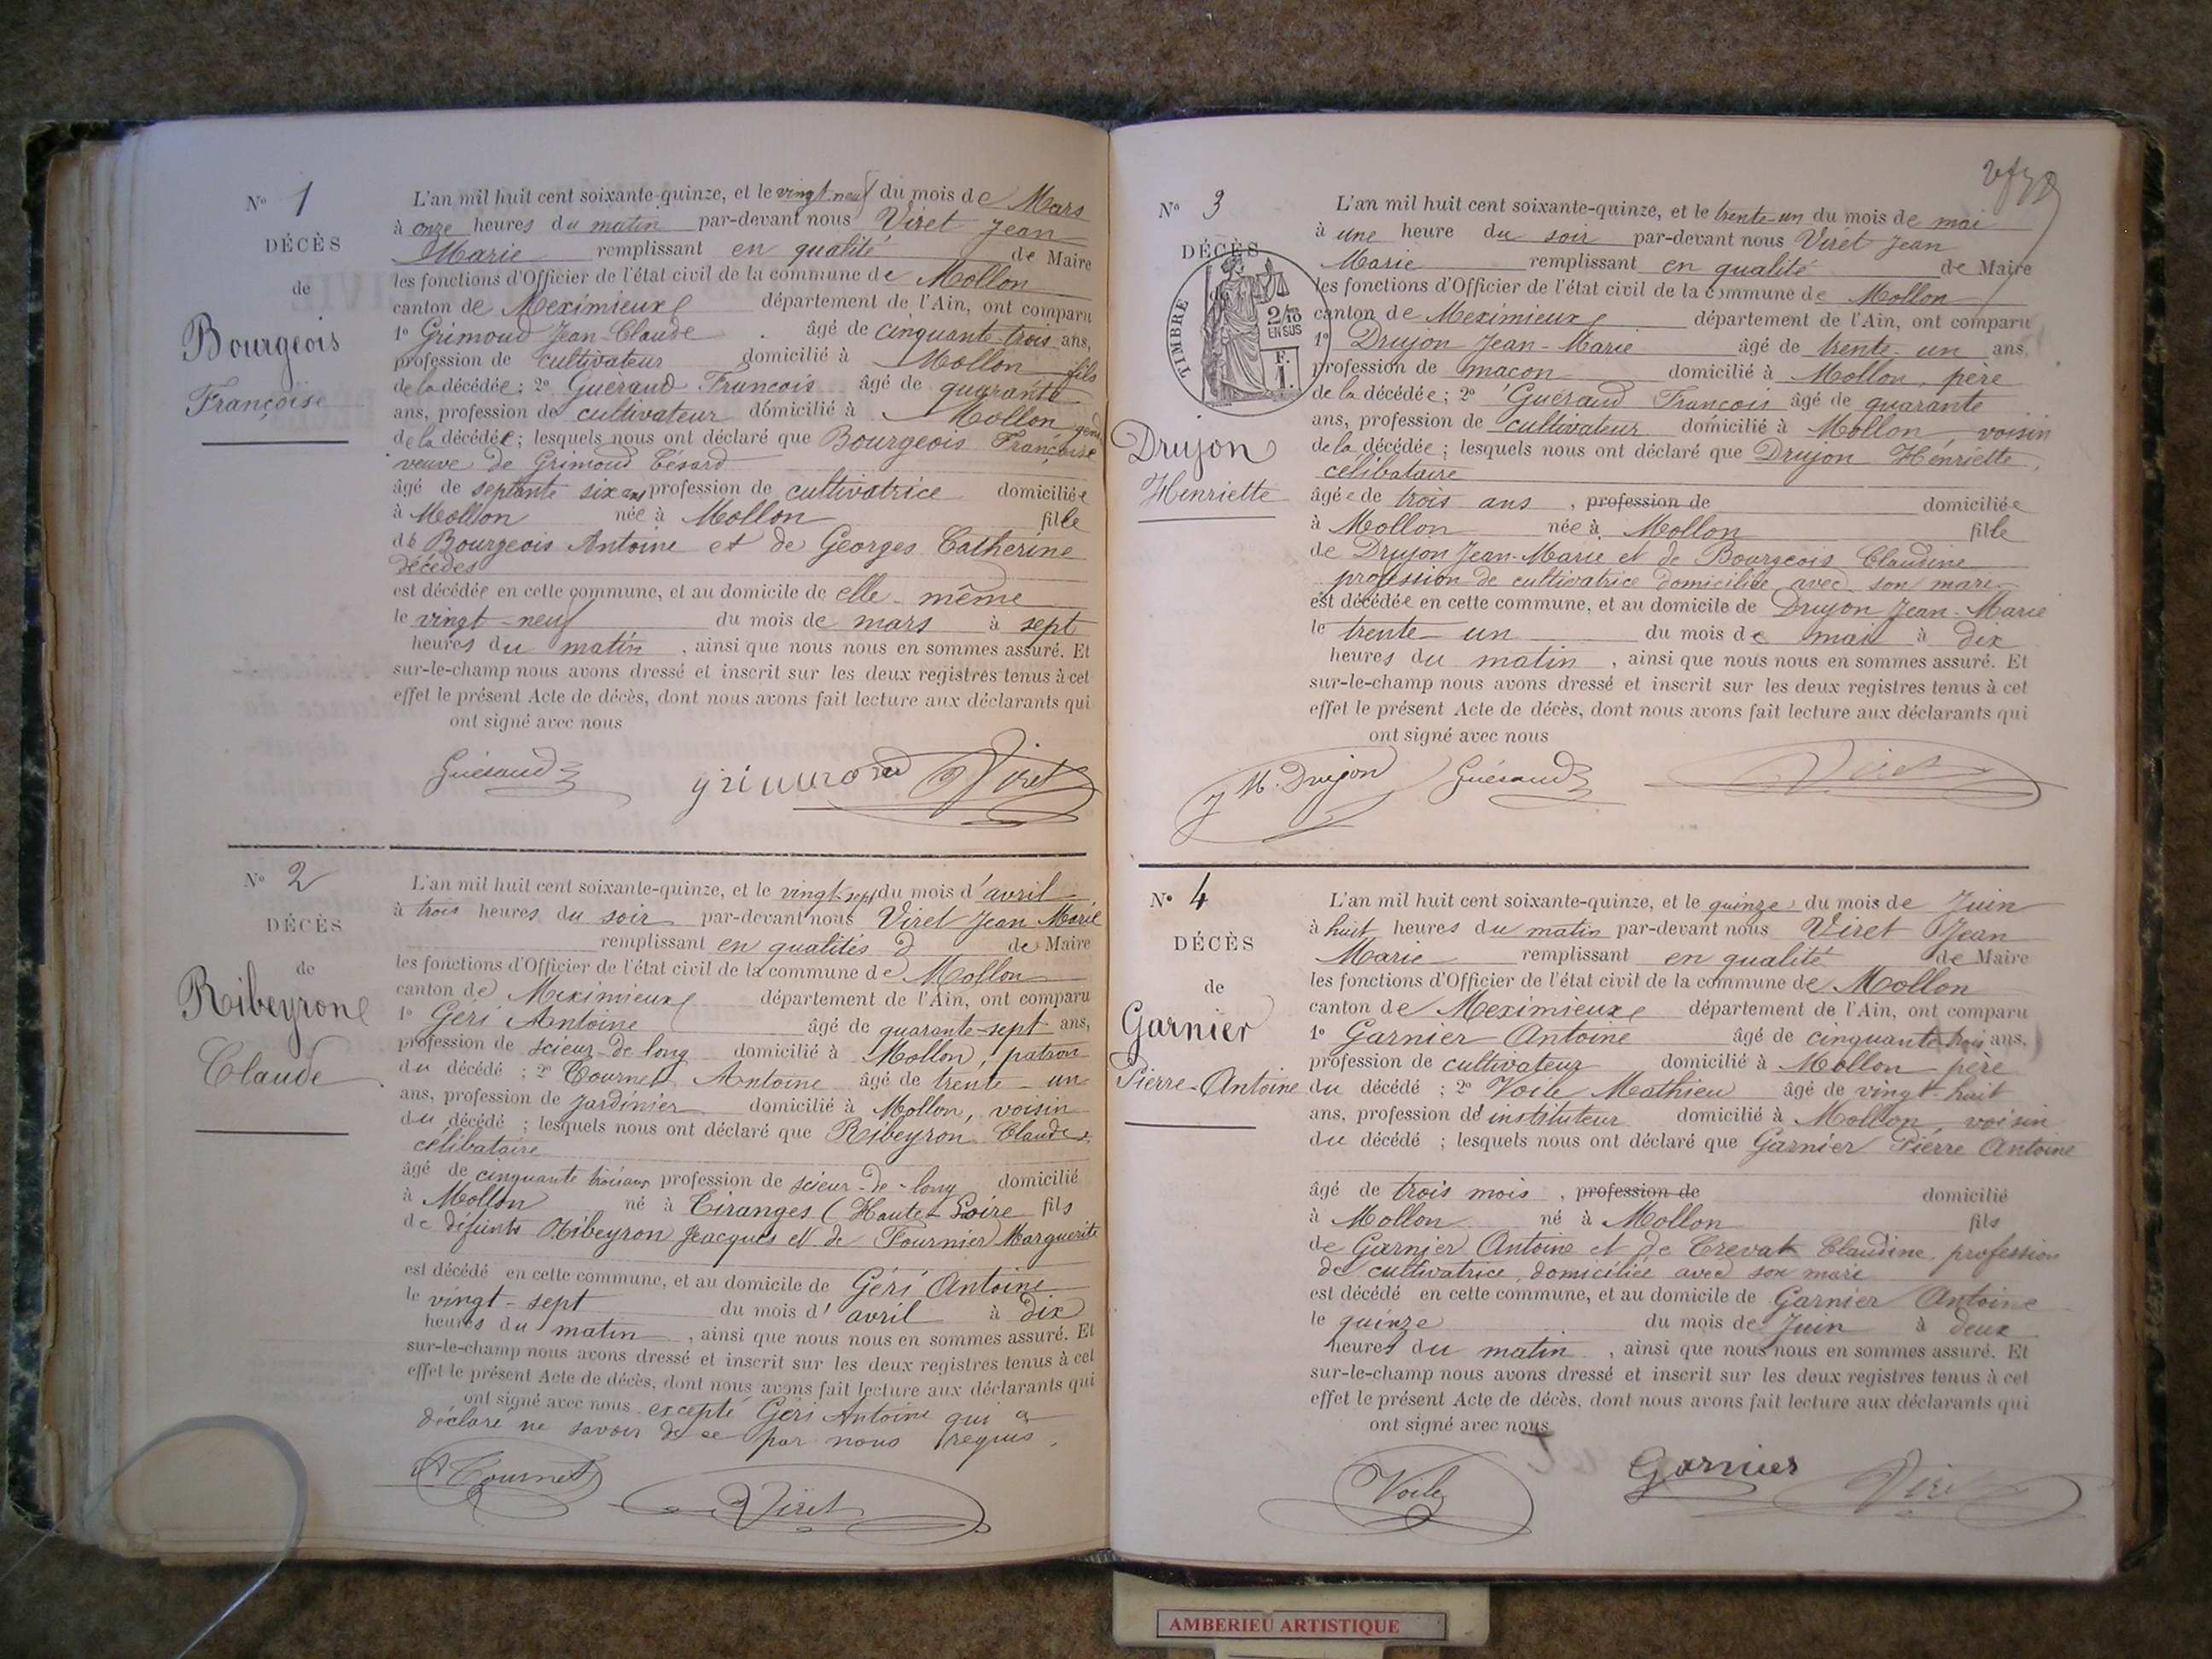 N° 1
DÉCÈS
de
Bourgeois
Françoise
L'an mil huit cent soixante-quinze, et le vingt neuf du mois de Mars
à onze heures du matin par-devant nous Viret Jean
Marie remplissant en qualité de Maire
les fonctions d'Officier de l'état civil de la commune de Mollon
canton de Meximieux département de l'Ain, ont comparu
1° Grimoud Jean-Claude âgé de cinquante-trois ans,
profession de cultivateur domicilié à Mollon, fils
de la décédée ; 2° Guéraud François âgé de quarante
ans, profession de cultivateur domicilié à Mollon gend
de la décédée ; lesquels nous ont déclaré que Bourgeois Françoise
veuve de Grimoud Césard
âgé de septante six ans profession de cultivatrice domiciliée
à Mollon née à Mollon fille
de Bourgeois Antoine et de Georges Catherine
décédés
est décédée en cette commune, et au domicile de elle-même
le vingt-neuf du mois de mars à sept
heures du matin, ainsi que nous nous en sommes assuré. Et
sur-le-champ nous avons dressé et inscrit sur les deux registres tenus à cet
effet le présent Acte de décès, dont nous avons fait lecture aux déclarants qui
ont signé avec nous
Guéraud grimoud Viret
N° 2
DÉCÈS
de
Ribeyron
Claude
L'an mil huit cent soixante-quinze, et le vingt-sept du mois d'avril
à trois heures du soir par-devant nous Viret Jean Marie
remplissant en qualités d de Maire
les fonctions d'Officier de l'état civil de la commune de Mollon
canton de Meximieux département de l'Ain, ont comparu
1° Géri Antoine âgé de quarante-sept ans,
profession de scieur-de long domicilié à Mollon, patron
du décédé ; 2° Tournet Antoine âgé de trente-un
ans, profession de Jardinier domicilié à Mollon, voisin
du décédé ; lesquels nous ont déclaré que Ribeyron Claude,
célibataire
âgé de cinquante trois ans profession de scieur-de-long domicilié
à Mollon né à Tiranges (Haute-Loire fils
de défunts Ribeyron Jacques et de Fournier Marguerite
est décédé en cette commune, et au domicile de Géri Antoine
le vingt-sept du mois d'avril à dix
heures du matin, ainsi que nous nous en sommes assuré. Et
sur-le-champ nous avons dressé et inscrit sur les deux registres tenus à cet
effet le présent Acte de décès, dont nous avons fait lecture aux déclarants qui
ont signé avec nous excepté Géri Antoine qui a
déclaré ne savoir de ce par nous requis.
A Tournet Viret
N° 3
DÉCÈS
TIMBRE
2/10
EN SUS
F.
I.
Drujon
Henriette
L'an mil huit cent soixante-quinze, et le trente-un du mois de mai
à une heure du soir par-devant nous Viret Jean
Marie remplissant en qualité de Maire
les fonctions d'Officier de l'état civil de la commune de Mollon
canton de Meximieux département de l'Ain, ont comparu
1° Drujon Jean-Marie âgé de trente-un ans,
profession de maçon domicilié à Mollon, père
de la décédée ; 2° Guéraud François âgé de quarante
ans, profession de cultivateur domicilié à Mollon, voisin
de la décédée ; lesquels nous ont déclaré que Drujon Henriette,
célibataire
âgée de trois ans, profession de domiciliée
à Mollon née à Mollon fille
de Drujon Jean-Marie et de Bourgeois Claudine
profession de cultivatrice domiciliée avec son mare
est décédée en cette commune, et au domicile de Drujon Jean-Marie
le trente-un du mois de mai à dix
heures du matin, ainsi que nous nous en sommes assuré. Et
sur-le-champ nous avons dressé et inscrit sur les deux registres tenus à cet
effet le présent Acte de décès, dont nous avons fait lecture aux déclarants qui
ont signé avec nous
J M. Drujon Guéraud Viret
N° 4
DÉCÈS
de
Garnier
Pierre-Antoine
L'an mil huit cent soixante-quinze, et le quinze du mois de Juin
à huit heures du matin par-devant nous Viret Jean
Marie remplissant en qualité de Maire
les fonctions d'Officier de l'état civil de la commune de Mollon
canton de Meximieux département de l'Ain, ont comparu
1° Garnier Antoine âgé de cinquante-trois ans,
profession de cultivateur domicilié à Mollon père
du décédé ; 2° Voile Mathieu âgé de vingt-huit
ans, profession d'instituteur domicilié à Mollon, voisin
du décédé ; lesquels nous ont déclaré que Garnier Pierre Antoine
âgé de trois mois, profession de domicilié
à Mollon né à Mollon fils
de Garnier Antoine et de Crevat Claudine profession
de cultivatrice, domiciliée avec son mari
est décédé en cette commune, et au domicile de Garnier Antoine
le quinze du mois de Juin à deux
heures du matin, ainsi que nous nous en sommes assuré. Et
sur-le-champ nous avons dressé et inscrit sur les deux registres tenus à cet
effet le présent Acte de décès, dont nous avons fait lecture aux déclarants qui
ont signé avec nous
Voile Garnier Viret
AMBERIEU ARTISTIQUE